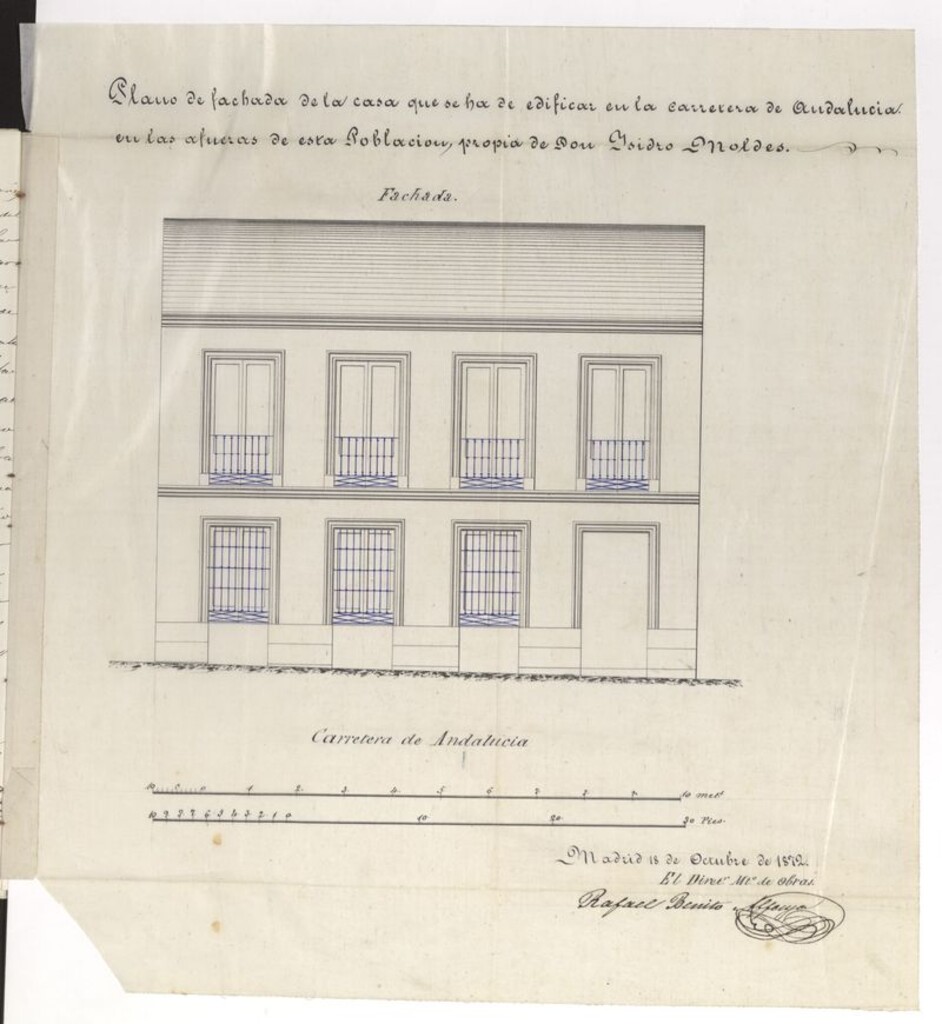 Plano de fachada de la casa que se ha de edificar en la carretera de Andalucia
en las afueras de esta Poblacion, propia de Don Ysidro Moldes.
Fachada.
Carretera de Andalucia
10 5 0 1 2 3 4 5 6 7 8 9 10 met.s
10 9 8 7 6 5 4 3 2 1 0 10 20 30 Pies.
Madrid 18 de Octubre de 1872.
El Direc.r Mt.o de Obras.
Rafael Benito